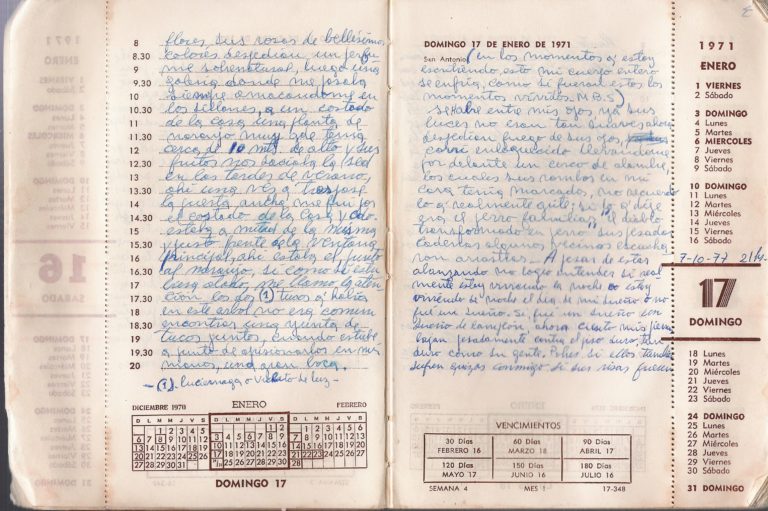 8 flores, sus rosas de bellísimos
8.30 colores despedían un perfu
9 me sobrenatural, luego una
9.30 galería donde me posaba
10 siempre amacandome en
10.30 los sillones, a un costado
11 de la casa una planta de
11.30 naranjo muy que tenía
12 cerca de 10 mts. de alto y sus
12.30 frutos nos saciaba la sed
13 en las tardes de verano,
13.30 ahí una vés a
14 la puerta, ancha me fui por
14.30 el costado de la casa y cdo
15 estaba a mitad de la misma
15.30 y justo frente de la ventana
16 principal, ahí estaba el, junto
16.30 al naranjo, si como si estu
17 me llamo la aten
17.30 ción los dos (1) tucos q' había
18 en este arbol no era comun
18.30 encontrar una yunta de
19 tucos juntos, cuando estube
19.30 a punto de apricionarlos en mis
20 manos, una gran boca.
(1) luciernaga o vichito de luz -
DICIEMBRE 1970
ENERO
FEBRERO
DOMINGO 17
DOMINGO 17 DE ENERO DE 1971
San Antonio
(en los momentos q' estoy
escribiendo esto mi cuerpo entero
se enfria, como si fueran estos los
momentos vividos M.B.S.)
se habre ente mis ojos ya sus
luces no eran tan suaves ahora
despedian fuego de sus ojos,
corri enloquecido llevandome
por delante un cerco de alambre,
los cuales sus rombos en mi
cara tenia marcados, no recuerdo
lo q' realmente grité; si lo q' dije
era el perro familiar, "el diablo
transformado en perro" sus pesadas
cadenas algunos vecinos escucha
ron arrastrar. A pesar de estar
alcanzando no logro entender si real
mente estoy viviendo la noche o estoy
viviendo de noche el dia de mi sueño o no
fue un sueño. Si, fue un sueño con
sueño de campeón, ahora cuento mis
bajan fondamente contra el piso duro, tan
duro como su gente. Pobres si ellos tambien
sufren quizas conmigo si sus risas fueron
7-10-77 21 hs.
VENCIMIENTOS
30 Días 60 Días 90 Días
FEBRERO 16 MARZO 18 ABRIL 17
120 Días 150 Días 180 Días
MAYO 17 JUNIO 16 JULIO 16
SEMANA 4 MES 1 17-348
1971
ENERO
1 VIERNES
2 Sábado
3 DOMINGO
4 Lunes
5 Martes
6 MIERCOLES
7 Jueves
8 Viernes
9 Sábado
10 DOMINGO
11 Lunes
12 Martes
13 Miércoles
14 Jueves
15 Viernes
16 Sábado
17
DOMINGO
18 Lunes
19 Martes
20 Miércoles
21 Jueves
22 Viernes
23 Sábado
24 DOMINGO
25 Lunes
26 Martes
27 Miércoles
28 Jueves
29 Viernes
30 Sábado
31 DOMINGO